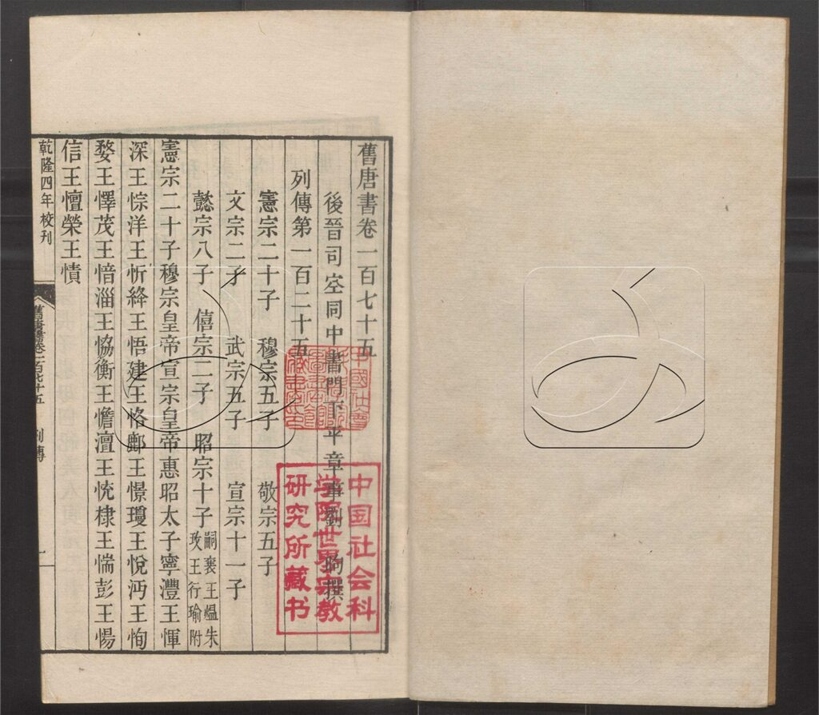 舊唐書卷一百七十五
後晉司空同中書門下平章事劉昫撰
列傳第一百二十五
憲宗二十子 穆宗五子 敬宗五子
文宗二子 武宗五子 宣宗十一子
懿宗八子 僖宗二子 昭宗十子 嗣襄王熅朱
玫王行瑜附
憲宗二十子穆宗皇帝宣宗皇帝惠昭太子寧澧王惲
深王悰洋王忻絳王悟建王恪鄜王憬瓊王悅沔王恂
婺王懌茂王愔淄王協衡王憺澶王㤝棣王惴彭王惕
信王憻榮王㥽
乾隆四年校刊
舊唐書卷一百七十五 列傳
一
中国社会科
学院世界宗教
研究所藏书